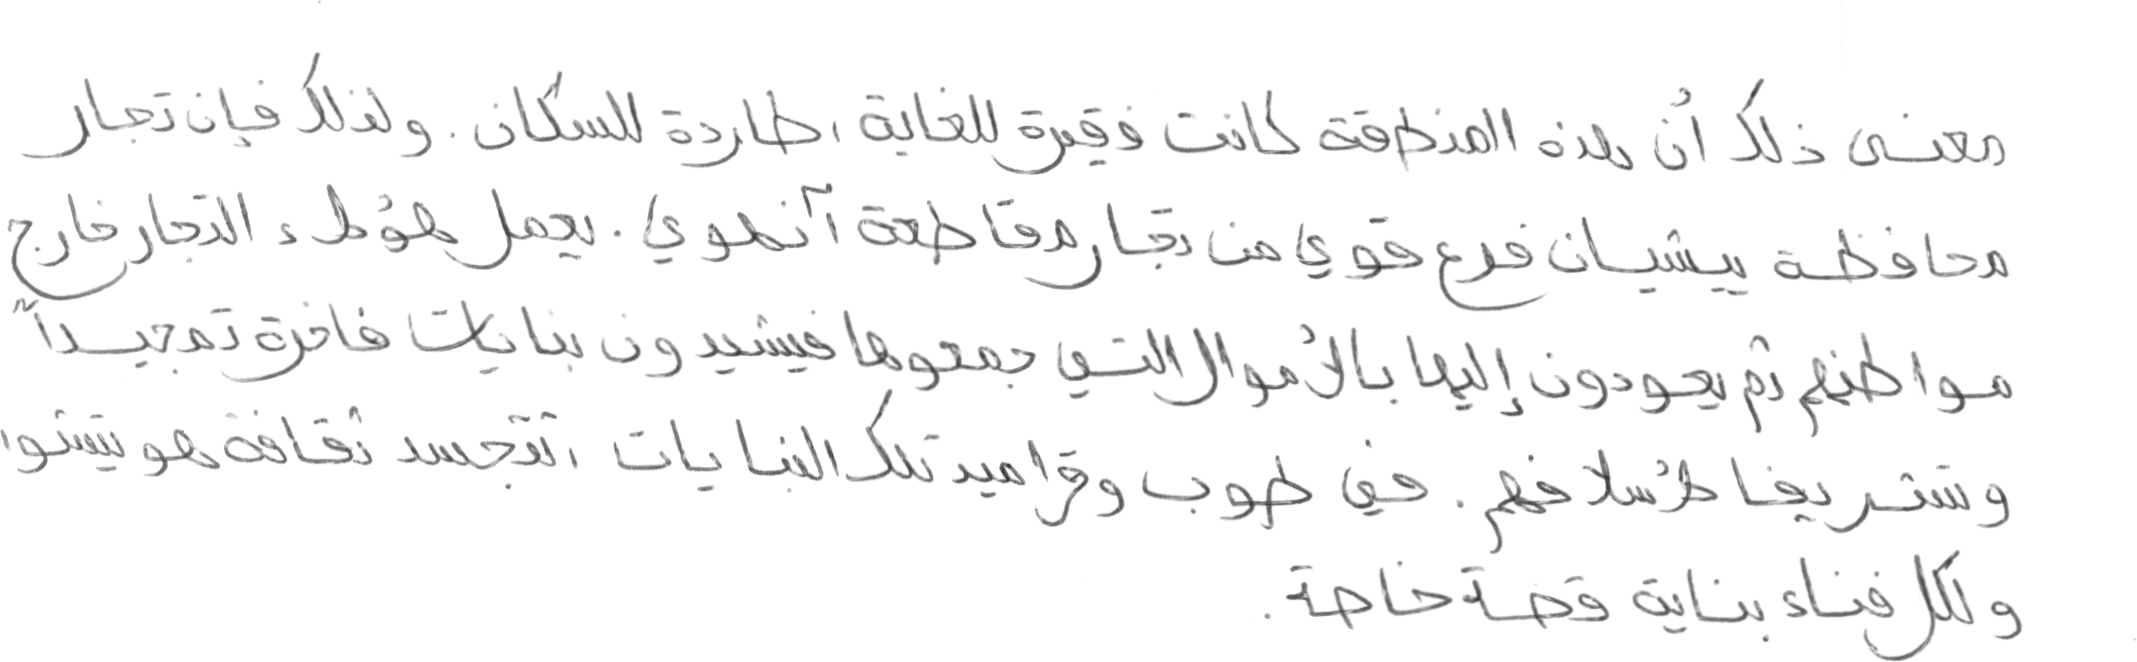 معنى ذلك أن هذه المنطقة كانت فقيرة للغاية ، طاردة للسكان . ولذلك فإن تجار
محافظة ييشيان فرع قوي من تجار مقاطعة آنهوي . يعمل هؤلاء التجار خارج
مواطنهم ثم يعودون إليها بالأموال التي جمعوها فيشيدون بنايات فاخرة تمجيداً
وتشريفا لأسلافهم . في طوب وقراميد تلك البنايات ، تتجسد ثقافة هويتشو
ولكل فناء بناية قصة خاصة .